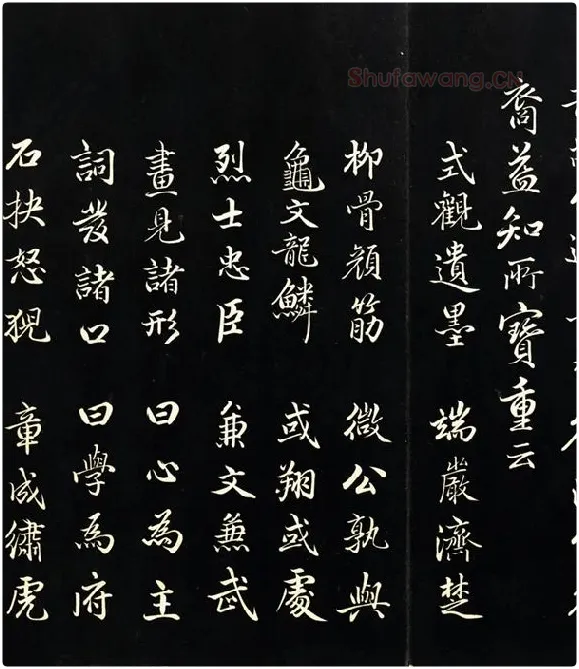 Shufawang.CN
裔益知所寶重云
式觀遺墨 端嚴濟楚
柳骨顏筋 微公孰與
龜文龍鱗 或翔或處
烈士忠臣 兼文兼武
畫見諸形 曰心為主
詞發諸口 曰學為府
石抉怒猊 章成繡虎